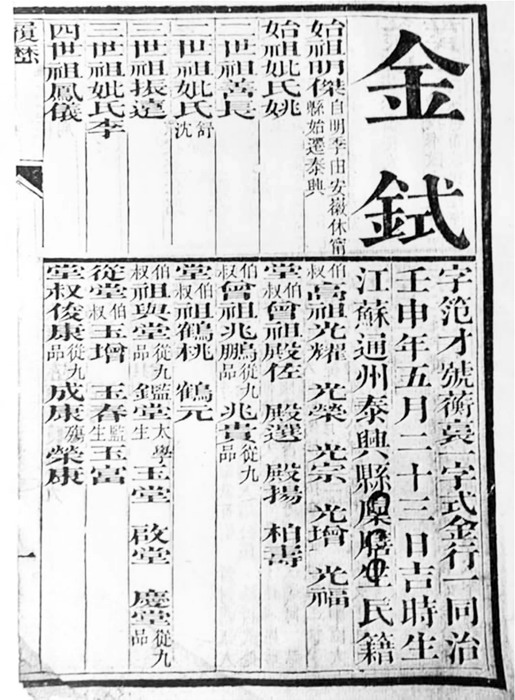 金鉽
字范才號蘅意一字式金行一同治
壬申年五月二十三日吉時生
江蘇通州泰興縣廩膳生民籍
始祖明傑自明季由安徽休甯縣始遷泰興
始祖妣氏姚
二世祖善長
二世祖妣氏舒沈
三世祖振遠
三世祖妣氏李
四世祖鳳儀
伯叔高祖光耀 光榮 光宗 光增 光福
堂伯叔曾祖殿佐 殿選 殿揚 柏壽
伯叔曾祖兆鵬從九品 兆貴從九品
堂伯叔祖鶴桃 鶴元
伯叔祖與堂從九品 鑑堂太學生 玉堂 啟堂 慶堂從九品
從堂伯叔玉增 玉春監生 玉富
堂叔俊康從九品 成康殤 榮康
履歷
一